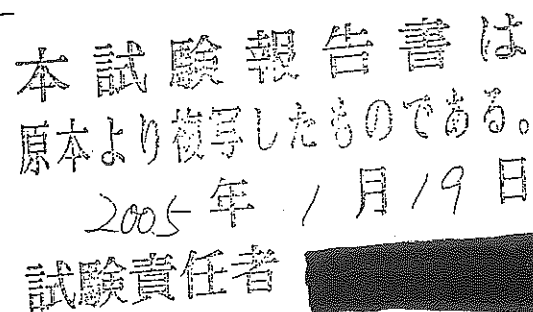 本試験報告書は
原本より複写したものである。
2005年1月19日
試験責任者